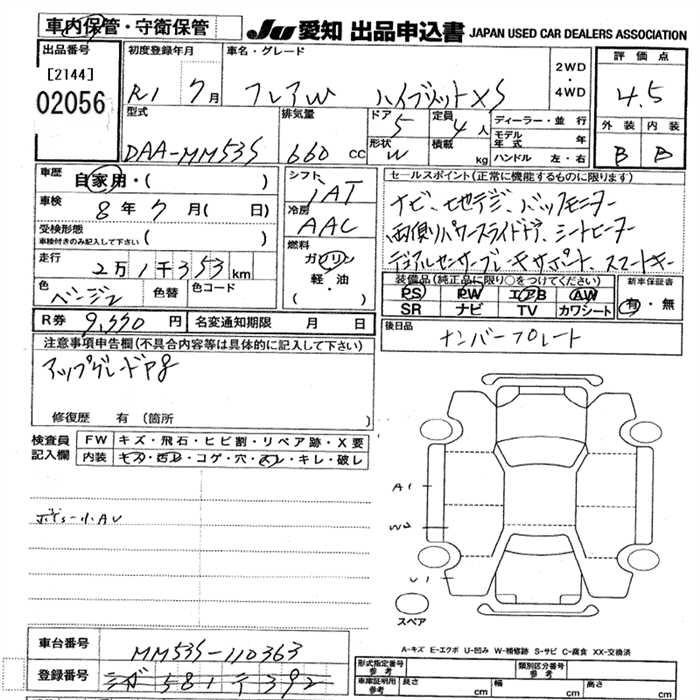 車内保管・守衛保管
JU 愛知 出品申込書 JAPAN USED CAR DEALERS ASSOCIATION
出品番号
[2144]
02056
初度登録年月
R1 7月
車名・グレード
フレアW ハイブリットXS
2WD
・
4WD
評価点
4.5
外装 内装
B B
型式
DAA-MM53S
排気量
660 cc
ドア
5
形状
W
定員
4人
積載
kg
ディーラー・並行
モデル年式 年
ハンドル 左・右
車歴
自家用・( )
車検
8年 7月( 日)
受検形態
車検付きのみ記入して下さい ( )
走行
2万1千353km
色
ベージュ
色替
色コード
シフト
iAT
冷房
AAC
燃料
ガソリン
軽・油
( )
セールスポイント(正常に機能するものに限ります)
ナビ、地デジ、バックモニター
両側パワースライドドア、シートヒーター
デュアルセンサーブレーキサポート スマートキー
装備品(純正品に限り○をつけてください)
PS PW エアB AW
SR ナビ TV カワシート
新車保証書
有・無
R券 9,550円
名変通知期限 月 日
後日品
ナンバープレート
注意事項申告欄(不具合内容等は具体的に記入して下さい)
アップグレードP8
修復歴 有(箇所 )
検査員記入欄
FW キズ・飛石・ヒビ割・リペア跡・X要
内装 キズ・汚レ・コゲ・穴・スレ・キレ・破レ
ボデー小AU
A1
W2
U1
スペア
A-キズ E-エクボ U-凹み W-補修跡 S-サビ C-腐食 XX-交換済
車台番号
MM53S-110363
登録番号
581 392
形式指定番号
参考
類別区分番号
参考
車庫証明用
参考
長さ cm
幅 cm
高さ cm